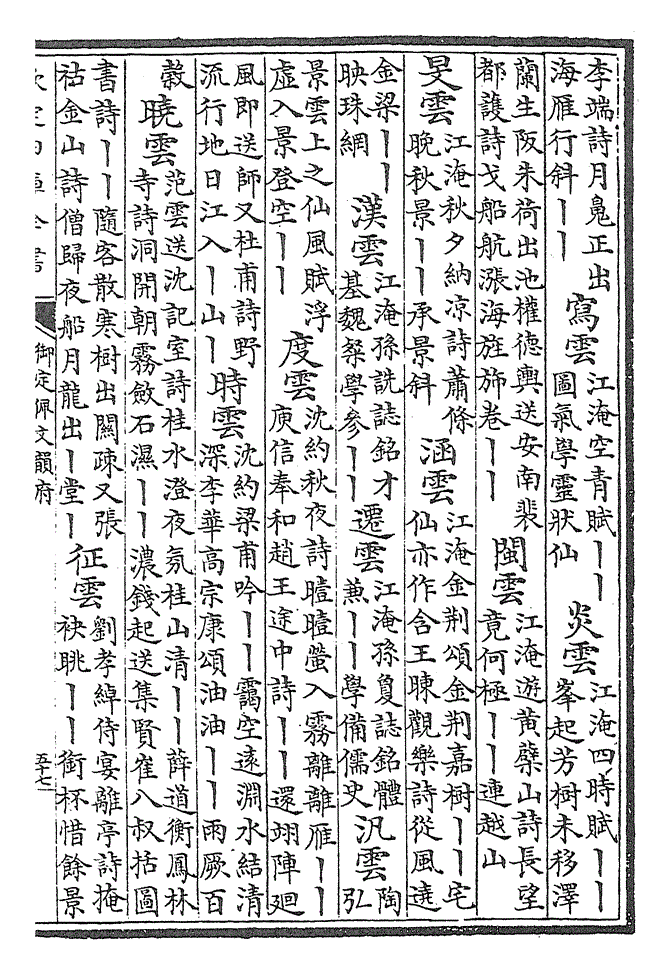 李端詩月鳧正出
海雁行斜丨丨
寫雲
江淹空青賦丨丨
圖氣學靈狀仙
炎雲
江淹四時賦丨丨
峯起芳樹未移澤
蘭生阪朱荷出池權德輿送安南裴
都護詩戈船航漲海旌斾卷丨丨
閩雲
江淹遊黃蘗山詩長望
竟何極丨丨連越山
旻雲
江淹秋夕納凉詩蕭條
晚秋景丨丨承景斜
涵雲
江淹金荆頌金荆嘉樹丨丨宅
仙亦作含王暕觀樂詩從風遶
金梁丨丨
映珠網
漢雲
江淹孫詵誌銘才
基魏粲學參丨丨
遷雲
江淹孫敻誌銘體
兼丨丨學備儒史
汎雲
陶
弘
景雲上之仙風賦浮
虛入景登空丨丨
度雲
沈約秋夜詩曀曀螢入霧離離雁丨丨
庾信奉和趙王途中詩丨丨還翊陣廻
風即送師又杜甫詩野
流行地日江入丨山丨
時雲
沈約梁甫吟丨丨靄空遠淵水結清
深李華高宗康頌油油丨丨雨厥百
穀
曉雲
范雲送沈記室詩桂水澄夜氛桂山清丨丨薛道衡鳳林
寺詩洞開朝霧斂石濕丨丨濃錢起送集賢崔八叔括圖
書詩丨丨隨客散寒樹出關疎又張
祜金山詩僧歸夜船月龍出丨堂丨
征雲
劉孝綽侍宴離亭詩掩
袂眺丨丨銜杯惜餘景
欽定四庫全書
御定佩文韻府
五十七